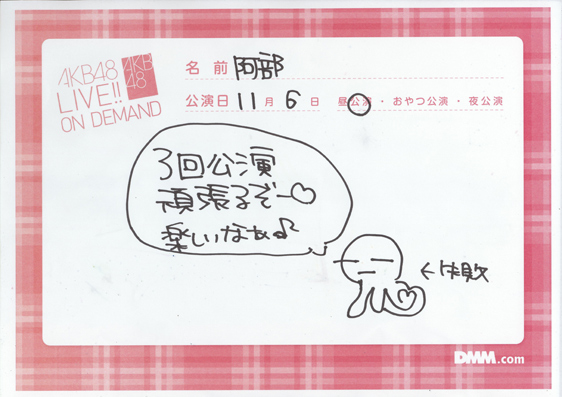 AKB48
LIVE!!
ON DEMAND
AKB
48
名前 阿部
公演日 11月 6日 昼公演・おやつ公演・夜公演
3回公演
頑張るぞー♡
楽しいなぁ♪
←失敗
DMM.com